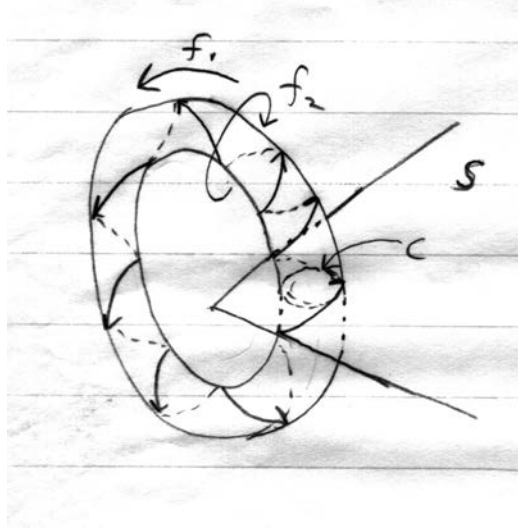 f₁
f₂
S
C